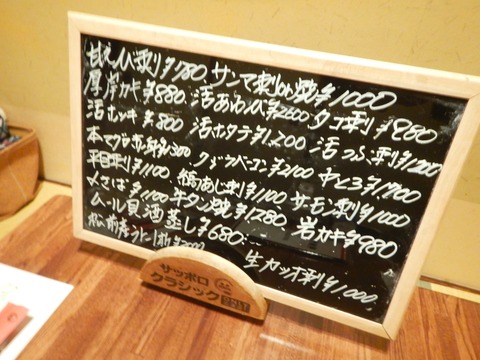 甘えび刺¥780 サンマ刺or焼¥1000
厚岸カキ¥880 活あわび¥2500 タコ刺¥880
活ホッキ¥800 活ホタテ¥1200 活つぶ刺¥1200
本マグロ赤身¥1300 クジラベーコン¥2100
平目刺¥1100 縞あじ刺¥1100 サーモン刺¥1000
〆さば¥1100 牛タン焼¥1280 岩カキ¥980
ムール貝酒蒸し¥680
松前産うに一折¥2000 生カツオ刺¥1000
サッポロ
クラシック